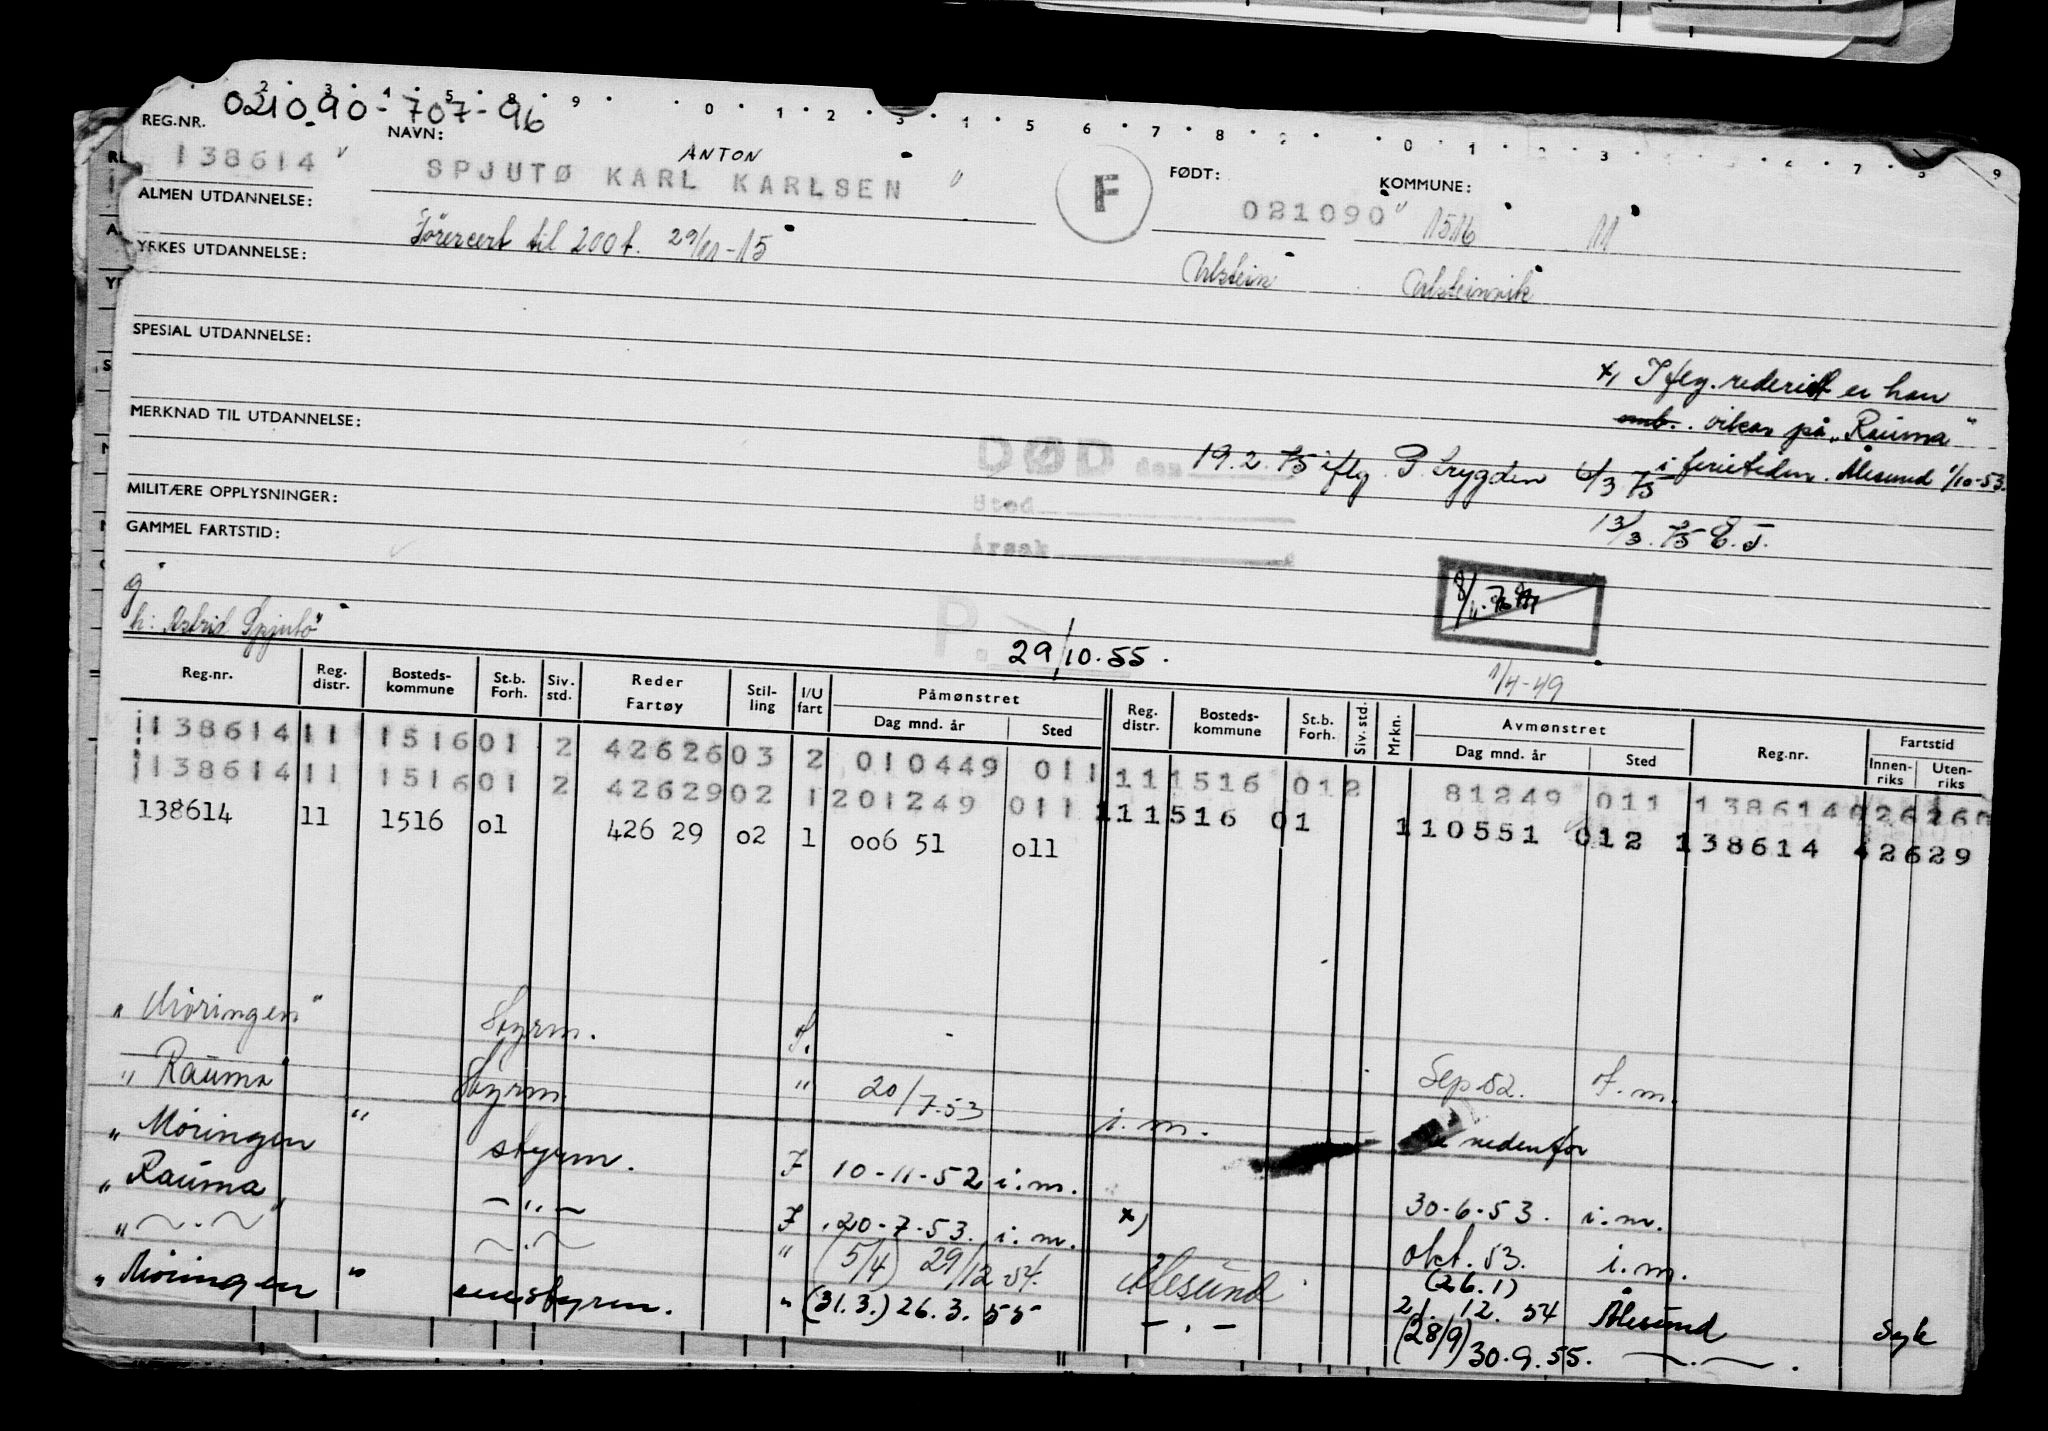 2 3 4 5 8 9 0 1 2 3 1 5 6 7 8 0 1 2 3 6 7 8 9
021090-707-96
REG.NR. NAVN: FØDT: KOMMUNE:
ANTON
138614 SPJUTØ KARL KARLSEN F 021090 1516 11
ALMEN UTDANNELSE:
Førercert til 200t. 29/11-15
Ulstein Ulsteinvik
YRKES UTDANNELSE:
SPESIAL UTDANNELSE:
x) Iflg. rederiet er han
vikar på "Rauma"
MERKNAD TIL UTDANNELSE:
DØD den 19.2.75 iflg. 6/3 75 i ferietiden. Ålesund 1/10-53.
MILITÆRE OPPLYSNINGER:
Sted
13/3.75 E.T.
GAMMEL FARTSTID:
Årsak
g
h: Astrid Spjutø
P.
29/10.55.
1/4-49
Reg.nr. Reg. distr. Bosteds-kommune St.b. Forh. Siv. std. Reder Fartøy Stil-ling I/U fart Påmønstret Dag mnd. år Sted Reg. distr. Bosteds-kommune St.b. Forh. Siv. std. Mrkn. Avmønstret Dag mnd. år Sted Reg.nr. Fartstid Innen-riks Uten-riks
138614 11 1516 01 2 42626 03 2 010449 011 11 1516 01 2 81249 011 138614
138614 11 1516 01 2 42629 02 1 201249 011 11 1516 01 110551 012 138614 42629
138614 11 1516 o1 426 29 o2 1 oo6 51 o11
"Møringen" Styrm. Sep 52. f.m.
"Rauma" Styrm. " 20/7-53 i.m. nedenfor
"Møringen" styrm. F 10-11-52 i.m. 30-6-53. i.m.
"Rauma" -"- F 20-7-53. i.m. x) okt. 53. i.m.
"~.~" ~.~ " (5/4) 29/12 54. Ålesund (26.1) 21.12.54 Ålesund Syk
"Møringen" enestyrm. " (31.3.) 26.3.55 -"- (28/9) 30.9.55. ~.~.